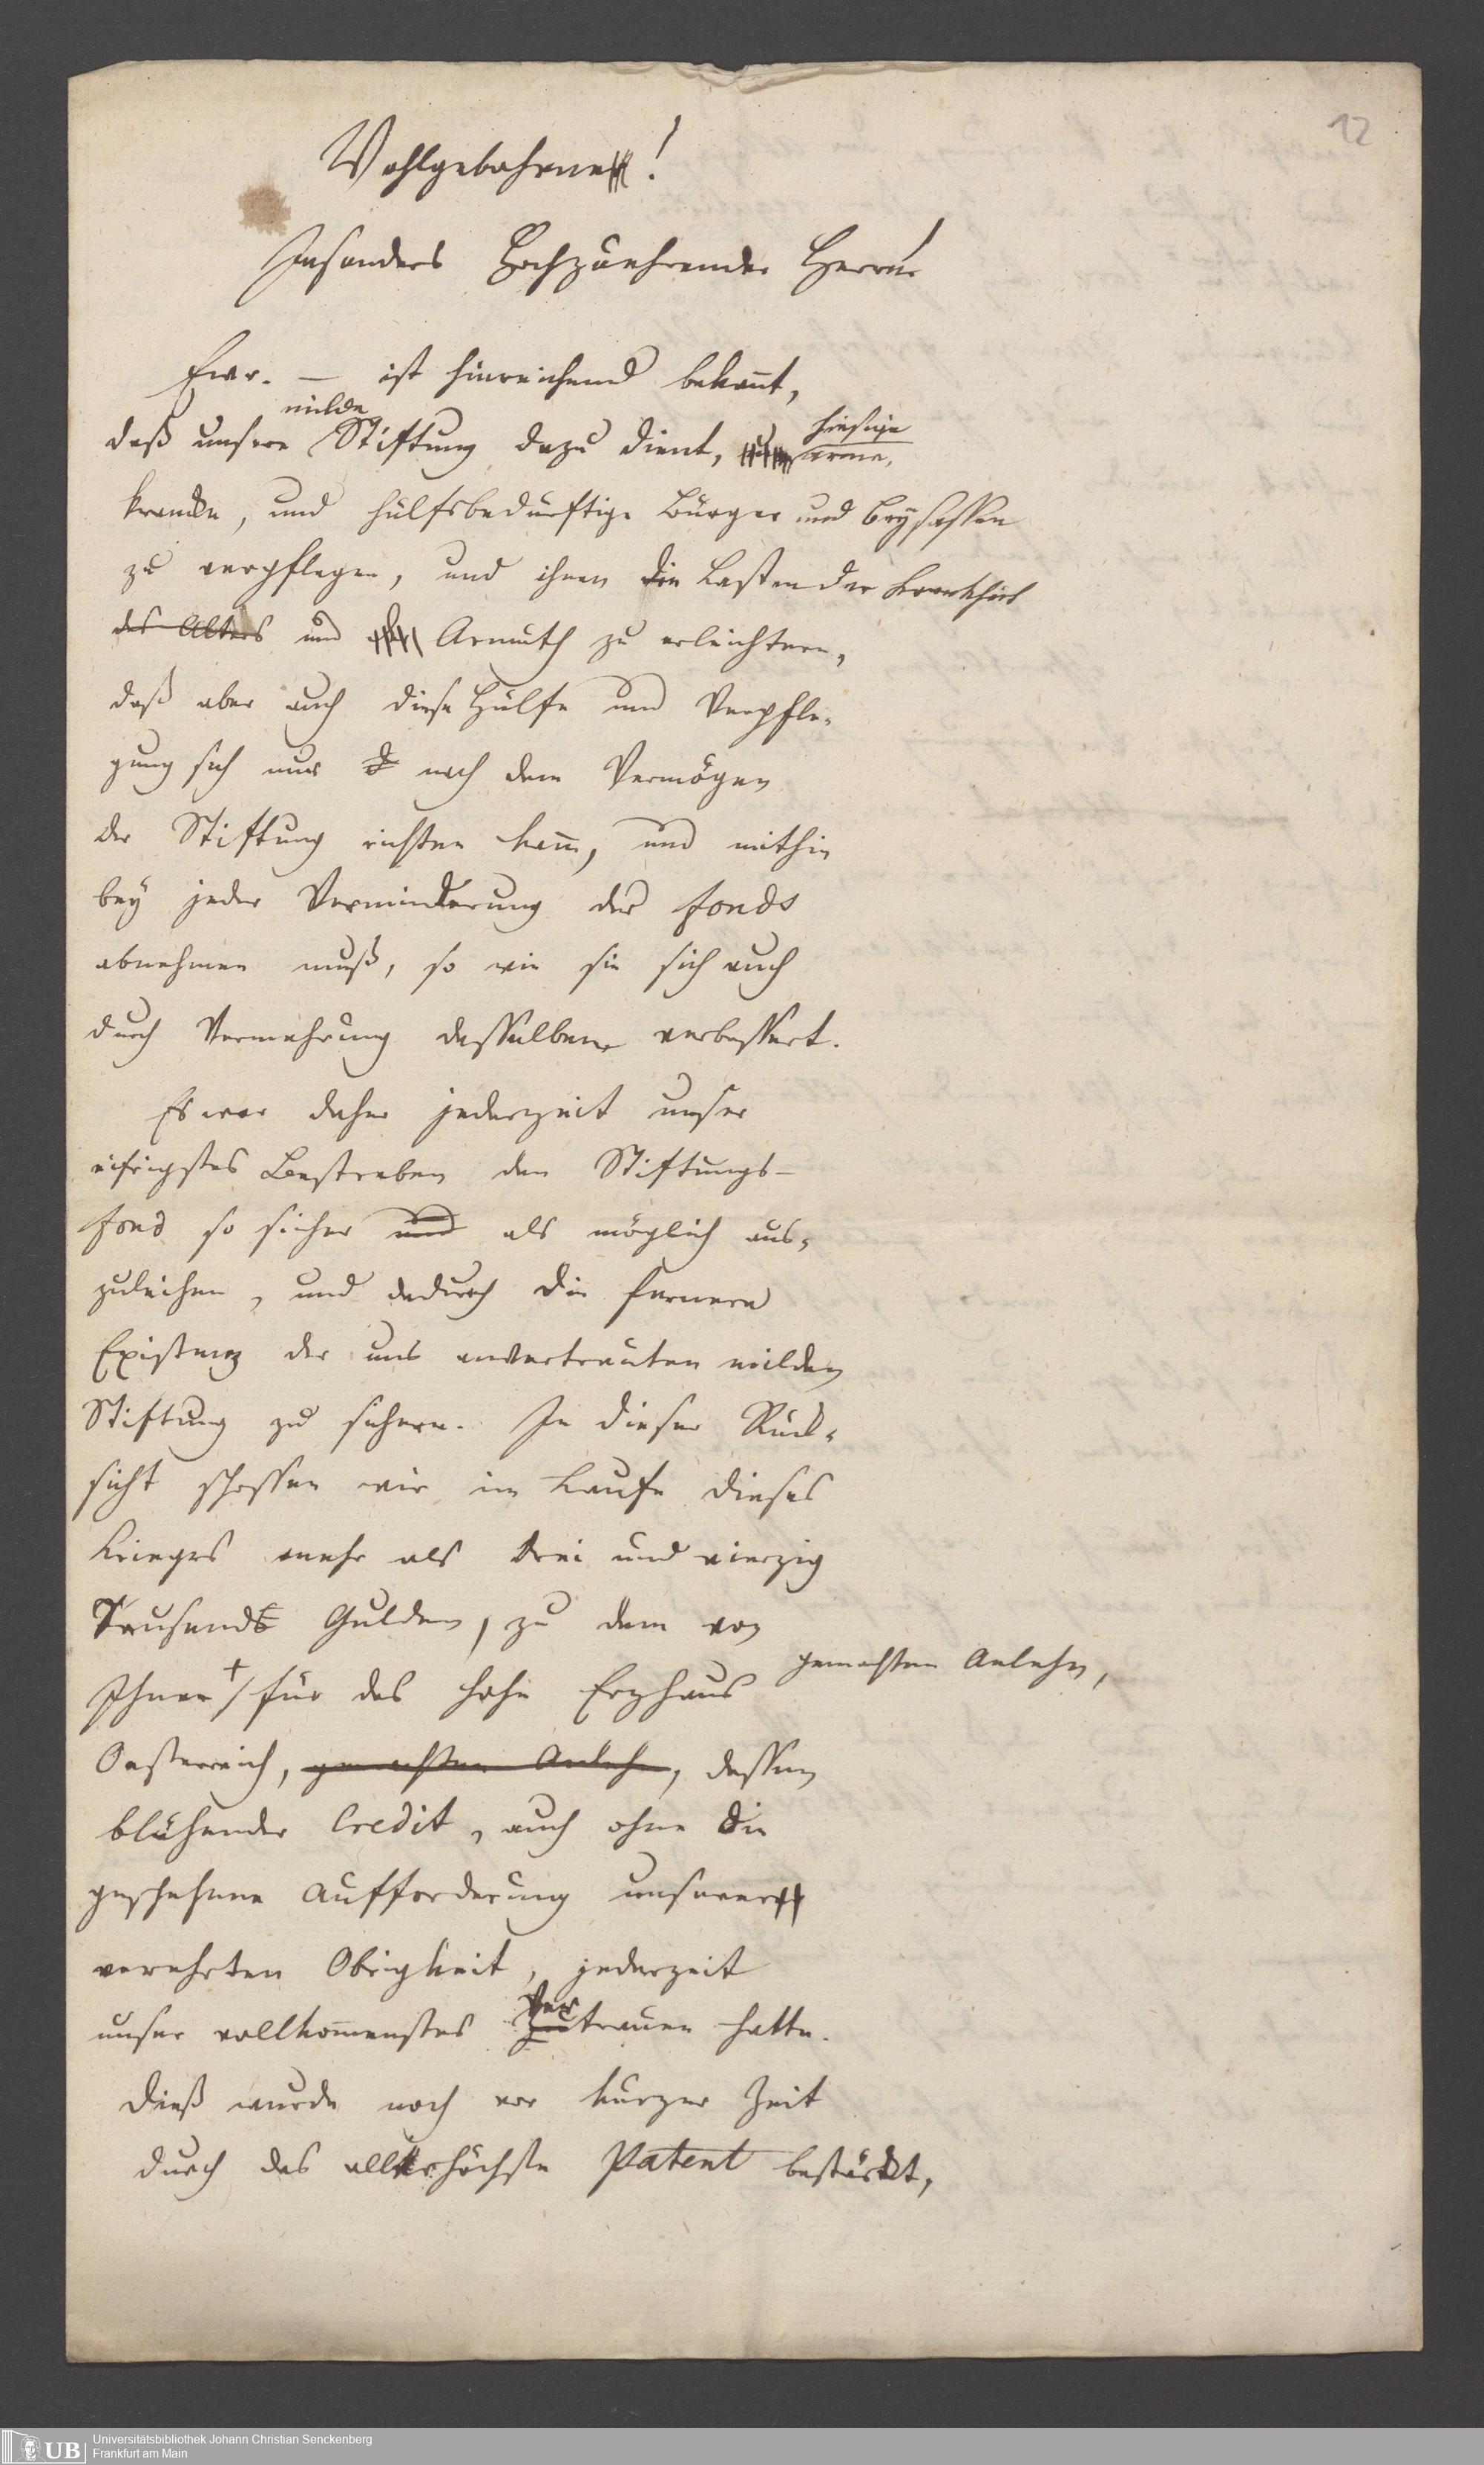 12
Wohlgebohrne!
Insonders Hochzuehrende Herrn
Ewr. — ist hinreichend bekannt,
daß unsere milde Stiftung dazu dient, hiesige arme,
kranke, und hülfsbedürftige Bürger und Beysassen
zu verpflegen, und ihnen die Lasten der Krankheit
des Alters und Armuth zu erleichtern,
daß aber auch diese Hülfe und Verpfle-
gung sich nur nach dem Vermögen
der Stiftung richten kann, und mithin
bey jeder Verminderung des Fonds
abnehmen muß, so wie sie sich auch
durch Vermehrung desselben verbessert.
Es war daher jederzeit unser
eifrigstes Bestreben den Stiftungs-
fond so sicher und als möglich aus-
zuleihen, und dadurch die fernere
Existenz der uns anvertrauten milden
Stiftung zu sichern. In dieser Rück-
sicht schossen wir im Laufe dieses
Krieges mehr als drei und vierzig
Tausend Gulden, zu dem von
Ihnen + / für das hohe Erzhaus gemachten Anlehn,
Oesterreich, gemachten Anlehn, dessen
blühender Credit, auch ohne die
geschehene Aufforderung unserer
verehrten Obrigkeit, jederzeit
unser vollkommenstes Zutrauen Ver hatte.
Dieß wurde noch vor kurzer Zeit
durch das allerhöchste Patent bestärkt,
UB
Universitätsbibliothek Johann Christian Senckenberg
Frankfurt am Main